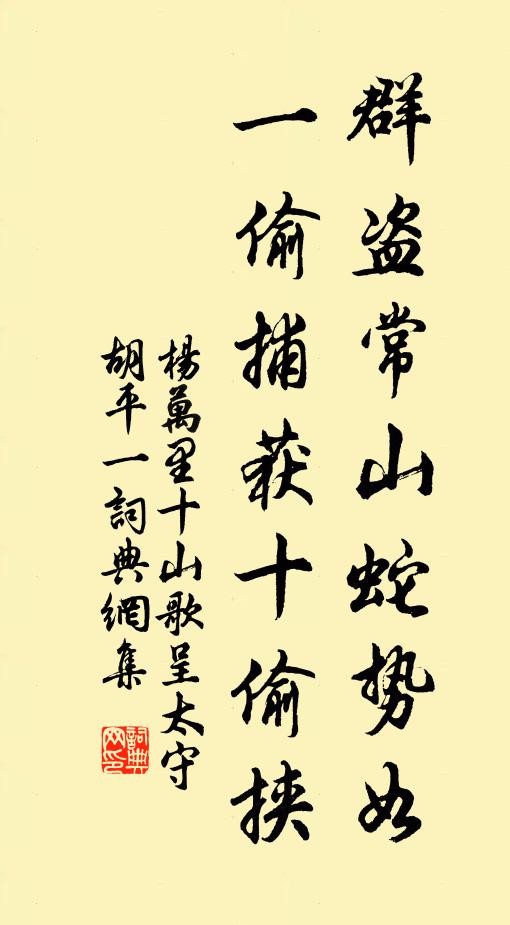 群盗常山蛇势如
一偷捕获十偷挟
楊萬里十山歌呈太守
胡平一詞典網集
詞典网印